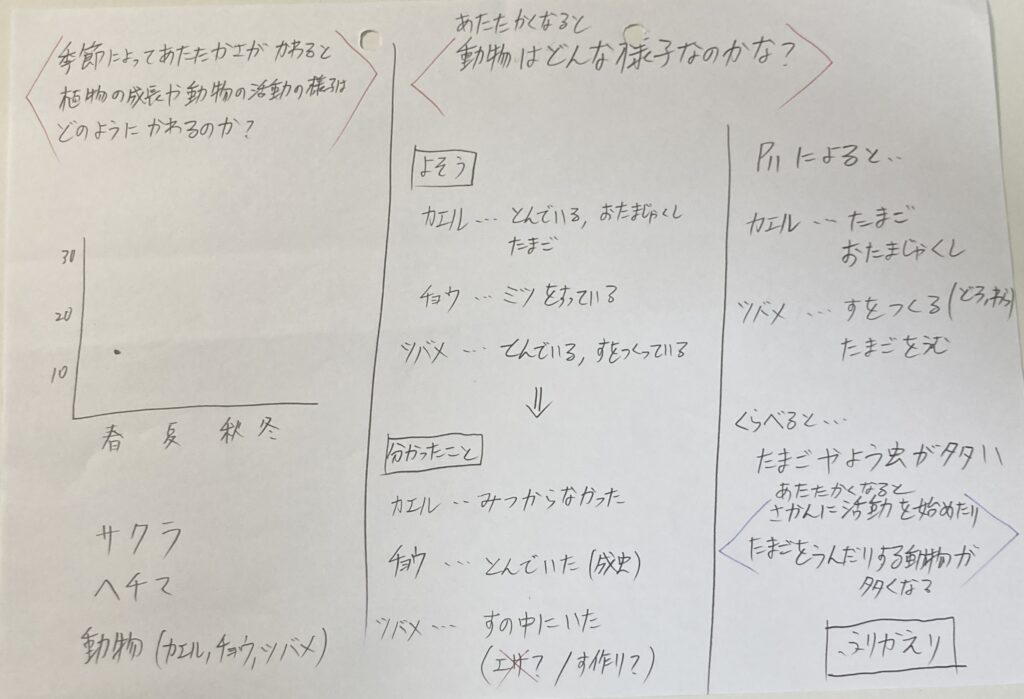 季節によってあたたかさがかわると
植物の成長や動物の活動の様子は
どのようにかわるのか?
30
20
10
春 夏 秋 冬
サクラ
ヘチマ
動物(カエル,チョウ,ツバメ)
あたたかくなると
動物はどんな様子なのかな?
よそう
カエル…とんでいる,おたまじゃくし
たまご
チョウ…ミツをすっている
ツバメ…とんでいる,すをつくっている
⇓
分かったこと
カエル…みつからなかった
チョウ…とんでいた(成虫)
ツバメ…すの中にいた
(エサ?/す作り?)
P11によると…
カエル…たまご
おたまじゃくし
ツバメ…すをつくる(どろ,
たまごをうむ
くらべると…
たまごやよう虫が多い
あたたかくなると
さかんに活動を始めたり
たまごをうんだりする動物が
多くなる
ふりかえり